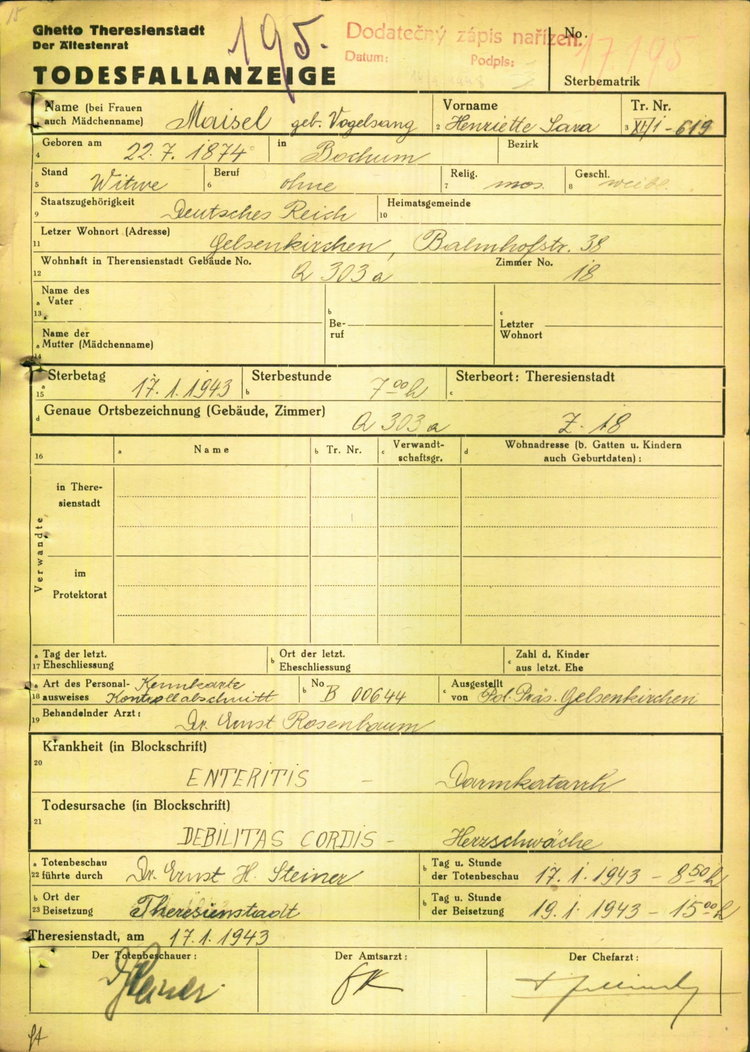 Ghetto Theresienstadt
Der Ältestenrat
TODESFALLANZEIGE
195.
Dodatečný zápis nařízen.
Datum: Podpis:
No.
17,195
Sterbematrik
Name (bei Frauen auch Mädchenname) Maisel geb. Vogelsang
Vorname
2 Henriette Sara
Tr. Nr.
3 XI/1-619
4 Geboren am 22.7.1874 in Bochum Bezirk
5 Stand Witwe 6 Beruf ohne 7 Relig. mos. 8 Geschl. weibl.
9 Staatszugehörigkeit Deutsches Reich 10 Heimatsgemeinde
11 Letzer Wohnort (Adresse) Gelsenkirchen, Bahnhofstr. 38
12 Wohnhaft in Therensienstadt Gebäude No. Q 303a Zimmer No. 18
13 a Name des Vater
14 a Name der Mutter (Mädchenname)
b Beruf
c Letzter Wohnort
15 a Sterbetag 17.1.1943 b Sterbestunde 7 00 h c Sterbeort: Theresienstadt
d Genaue Ortsbezeichnung (Gebäude, Zimmer) Q 303a Z. 18
16 a Name b Tr. Nr. c Verwandtschaftsgr. d Wohnadresse (b. Gatten u. Kindern auch Geburtdaten):
Verwandte
in Theresienstadt
im Protektorat
17 a Tag der letzt. Eheschliessung b Ort der letzt. Eheschliessung c Zahl d. Kinder aus letzt. Ehe
18 a Art des Personalausweises Kennkarte Kontrollabschnitt b No B 00644 c Ausgestellt von Pol. Präs. Gelsenkirchen
19 Behandelnder Arzt: Dr. Ernst Rosenbaum
Krankheit (in Blockschrift)
20 ENTERITIS - Darmkatarrh
Todesursache (in Blockschrift)
21 DEBILITAS CORDIS - Herzschwäche
22 a Totenbeschau führte durch Dr. Ernst H. Steiner b Tag u. Stunde der Totenbeschau 17.1.1943 - 8 50 h
23 b Ort der Beisetzung Theresienstadt b Tag u. Stunde der Beisetzung 19.1.1943 - 15 00 h
Theresienstadt, am 17.1.1943
Der Totenbeschauer: Der Amtsarzt: Der Chefarzt: